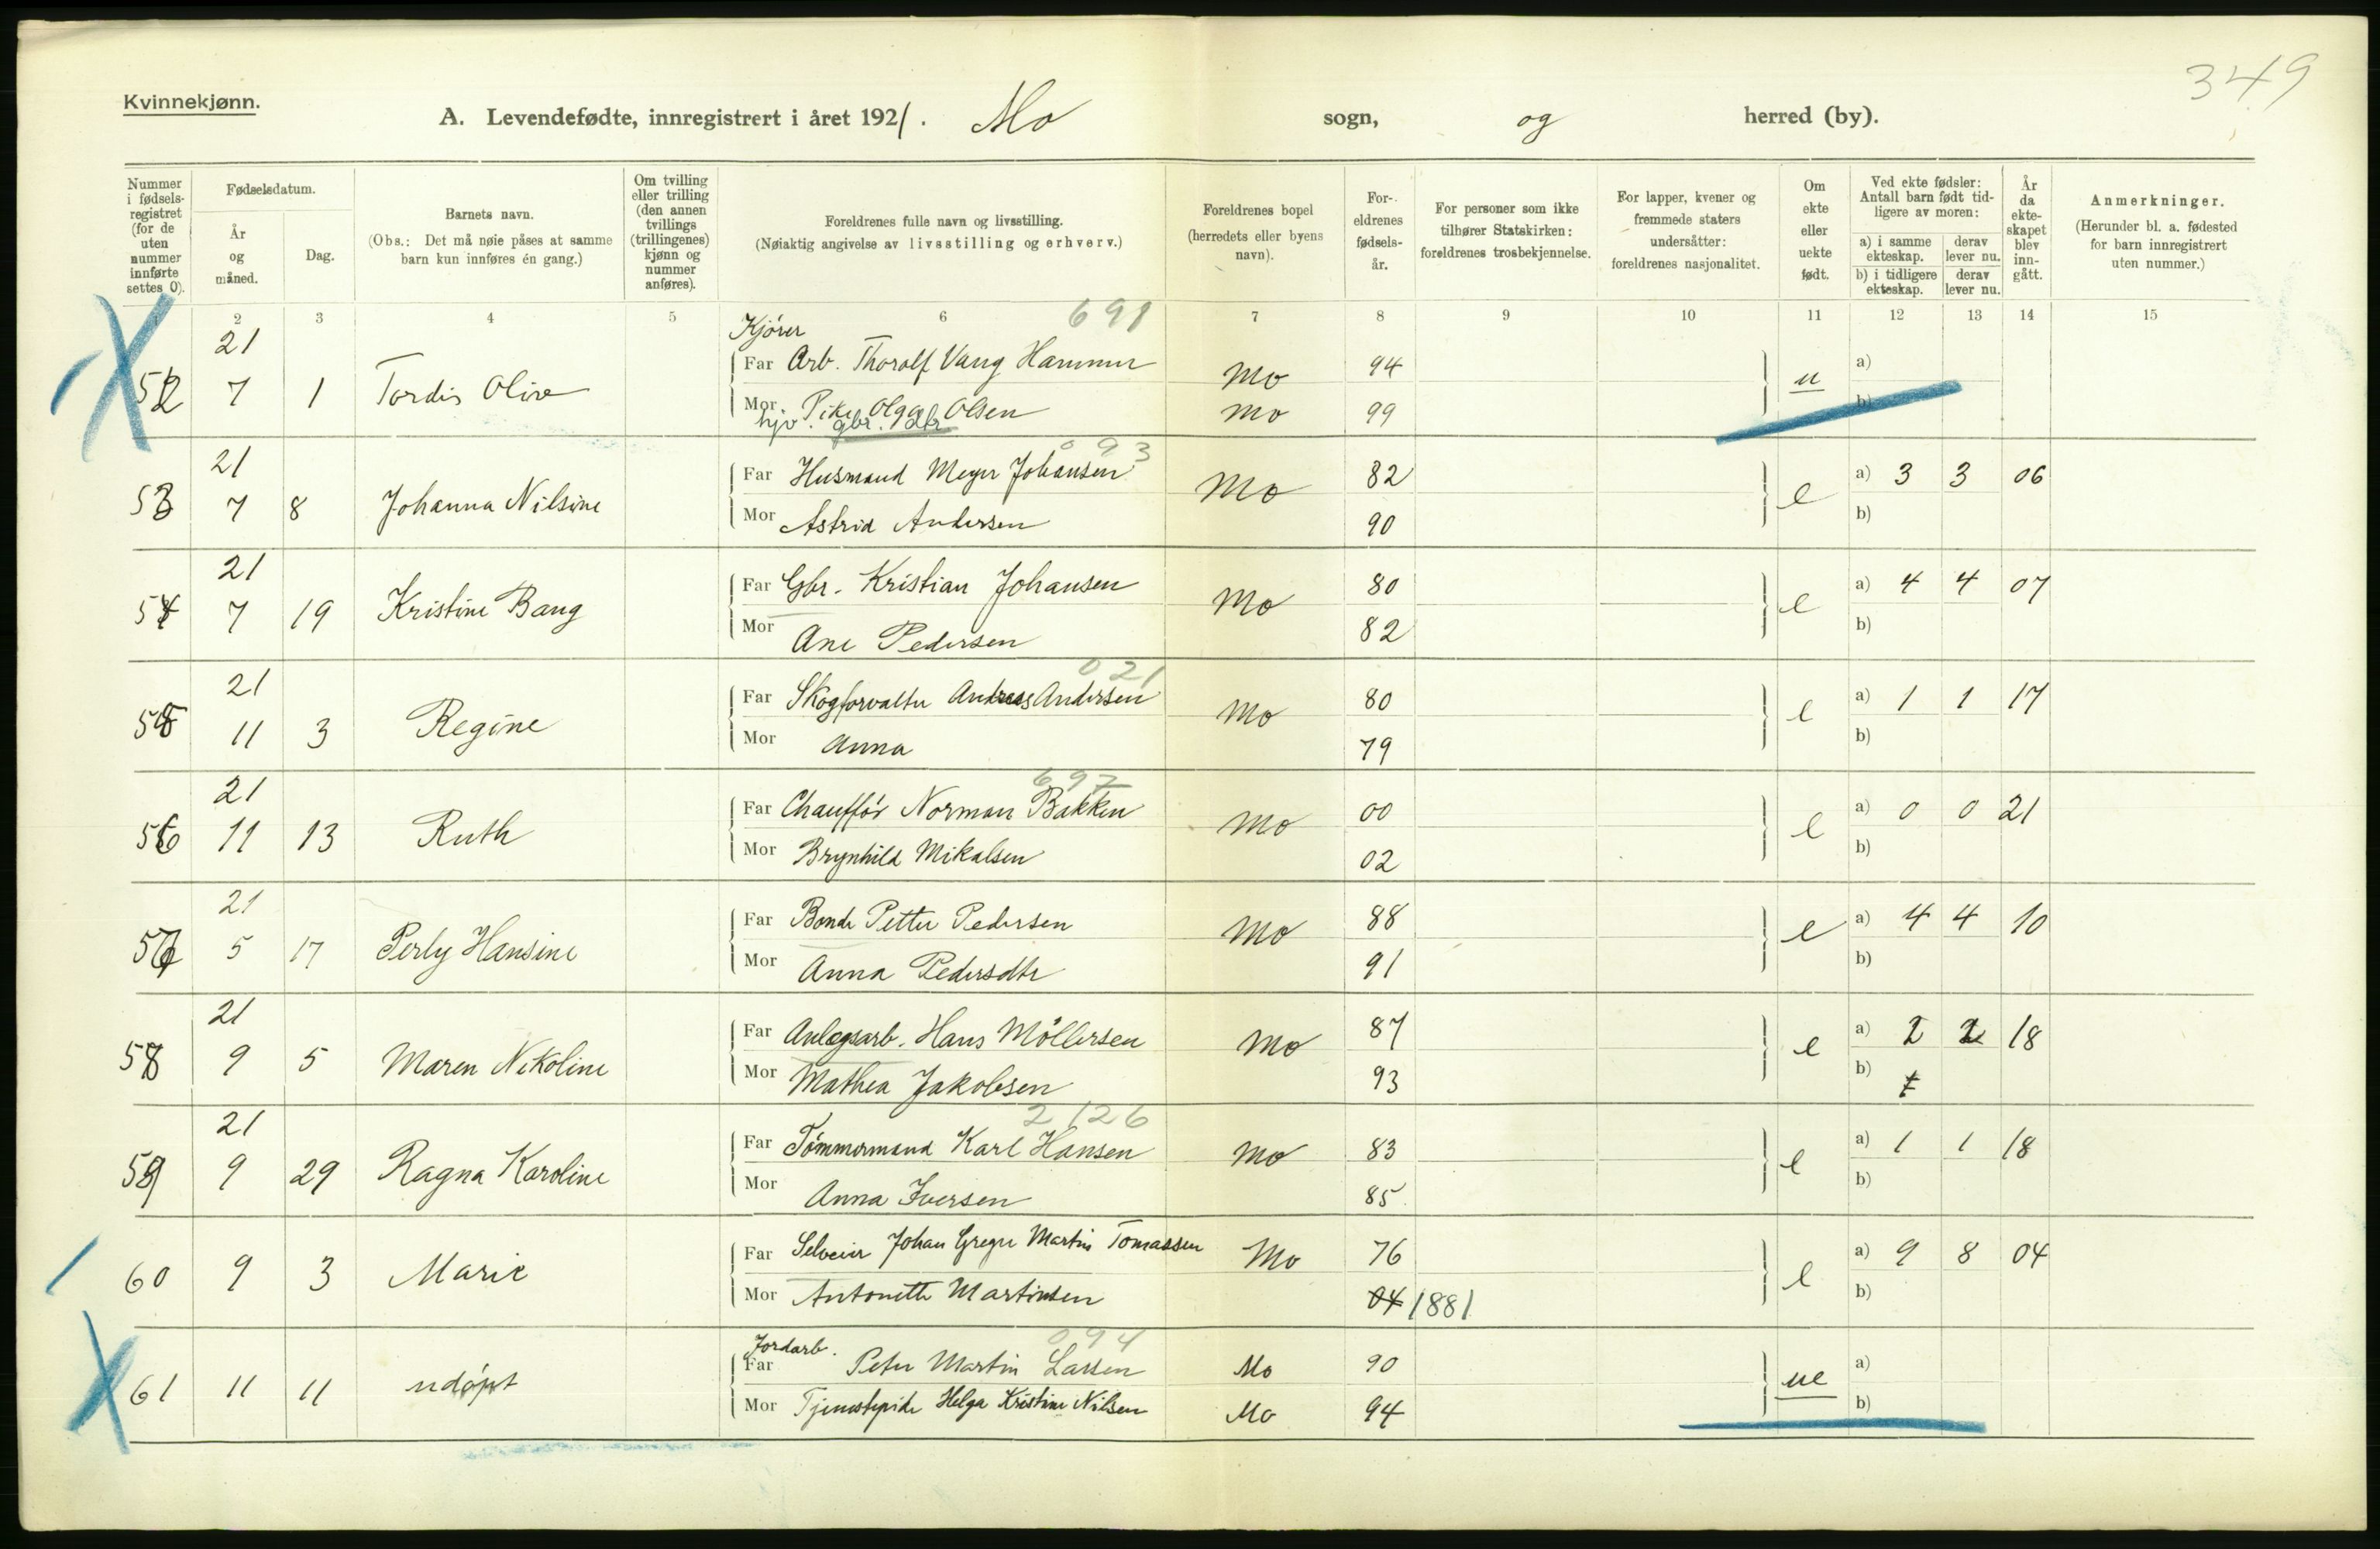 349
Kvinnekjønn.
A. Levendefødte, innregistrert i året 1921. Mo sogn, og herred (by).
Nummer i fødsels-registret (for de uten nummer innførte settes 0).
Fødselsdatum.
År og måned.
Dag.
Barnets navn.
(Obs.: Det må nøie påses at samme barn kun innføres én gang.)
Om tvilling eller trilling (den annen tvillings (trillingenes) kjønn og nummer anføres).
Foreldrenes fulle navn og livsstilling.
(Nøiaktig angivelse av livsstilling og erhverv.)
Foreldrenes bopel (herredets eller byens navn).
For-eldrenes fødsels-år.
For personer som ikke tilhører Statskirken: foreldrenes trosbekjennelse.
For lapper, kvener og fremmede staters undersåtter: foreldrenes nasjonalitet.
Om ekte eller uekte født.
Ved ekte fødsler: Antall barn født tid-ligere av moren:
a) i samme ekteskap.
derav lever nu.
b) i tidligere ekteskap.
derav lever nu.
År da ekte-skapet blev inn-gått.
Anmerkninger.
(Herunder bl. a. fødested for barn innregistrert uten nummer.)
1 2 3 4 5 6 7 8 9 10 11 12 13 14 15
691
Kjører
21
52 7 1 Tordis Olive
Far Arb. Thoralf Vang Hammer Mo 94 u a)
Mor Pike Olga Olsen Mo 99 b)
hjv. gbr. dtr
093
21
53 7 8 Johanna Nilsine
Far Husmand Meyer Johansen Mo 82 e a) 3 3 06
Mor Astrid Andersen 90 b)
21
54 7 19 Kristine Bang
Far Gbr. Kristian Johansen Mo 80 e a) 4 4 07
Mor Ane Pedersen 82 b)
021
21
55 11 3 Regine
Far Skogforvalter Andreas Andersen Mo 80 e a) 1 1 17
Mor Anna 79 b)
697
21
56 11 13 Ruth
Far Chauffør Norman Bakken Mo 00 e a) 0 0 21
Mor Brynhild Mikalsen 02 b)
21
57 5 17 Perly Hansine
Far Bonde Petter Pedersen Mo 88 e a) 4 4 10
Mor Anna Pedersdtr 91 b)
21
58 9 5 Maren Nikoline
Far Anlegsarb. Hans Möllersen Mo 87 e a) 2 2 18
Mor Mathea Jakobsen 93 b)
2126
21
59 9 29 Ragna Karoline
Far Tømmermand Karl Hansen Mo 83 e a) 1 1 18
Mor Anna Iversen 85 b)
60 9 3 Marie
Far Selveier Johan Greger Martin Tomassen Mo 76 e a) 9 8 04
Mor Antonette Martinsen 04 1881 b)
094
Jordarb.
61 11 11 udøpt
Far Peter Martin Larsen Mo 90 ue a)
Mor Tjenestepike Helga Kristine Nilsen Mo 94 b)